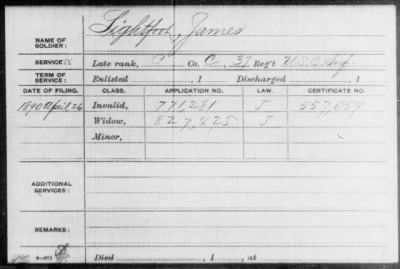 NAME OF SOLDIER: Lightfoot, James
SERVICE: Late rank, Co. C, 37 Reg't U.S.C. Inf.
TERM OF SERVICE: Enlisted , 1 Discharged , 1
DATE OF FILING. CLASS. APPLICATION NO. LAW. CERTIFICATE NO.
1890 April 26 Invalid, 771,281 J 557,059
Widow, 827,425 J
Minor,
ADDITIONAL SERVICES:
REMARKS:
Died , 1 , at